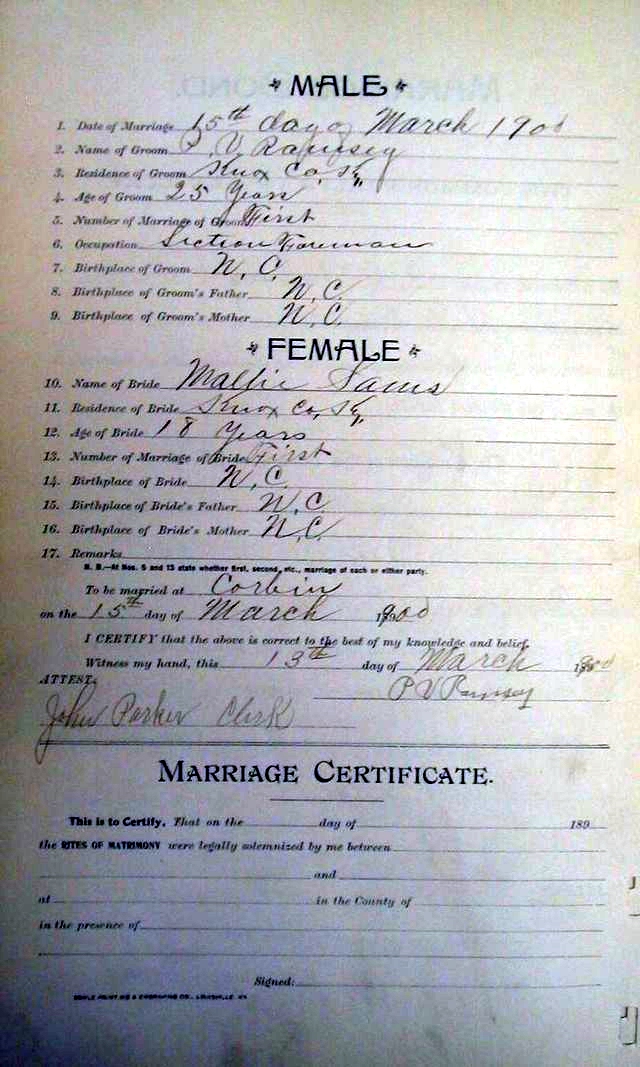 MALE
1. Date of Marriage 15th day of March 1900
2. Name of Groom P. V. Ramsey
3. Residence of Groom Knox Co, Ky,
4. Age of Groom 25 Years
5. Number of Marriage of Groom First
6. Occupation Section Foreman
7. Birthplace of Groom N. C.
8. Birthplace of Groom's Father N. C.
9. Birthplace of Groom's Mother N. C.
FEMALE
10. Name of Bride Mallie Sams
11. Residence of Bride Knox Co, Ky,
12. Age of Bride 18 Years
13. Number of Marriage of Bride First
14. Birthplace of Bride N. C.
15. Birthplace of Bride's Father N. C.
16. Birthplace of Bride's Mother N. C.
17. Remarks
N. B.—At Nos. 5 and 13 state whether first, second, etc., marriage of each or either party.
To be married at Corbin
on the 15th day of March 1900
I CERTIFY that the above is correct to the best of my knowledge and belief.
Witness my hand, this 13th day of March 1900
ATTEST: P V Ramsey
John Parker Clerk
MARRIAGE CERTIFICATE.
This is to Certify, That on the day of 189
the RITES OF MATRIMONY were legally solemnized by me between
and
at in the County of
in the presence of
Signed:
PRINTING & ENGRAVING CO., LOUISVILLE, KY.